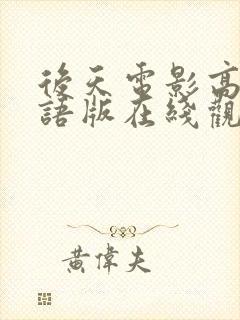 後天電影高
語版在綫觀
黃偉夫